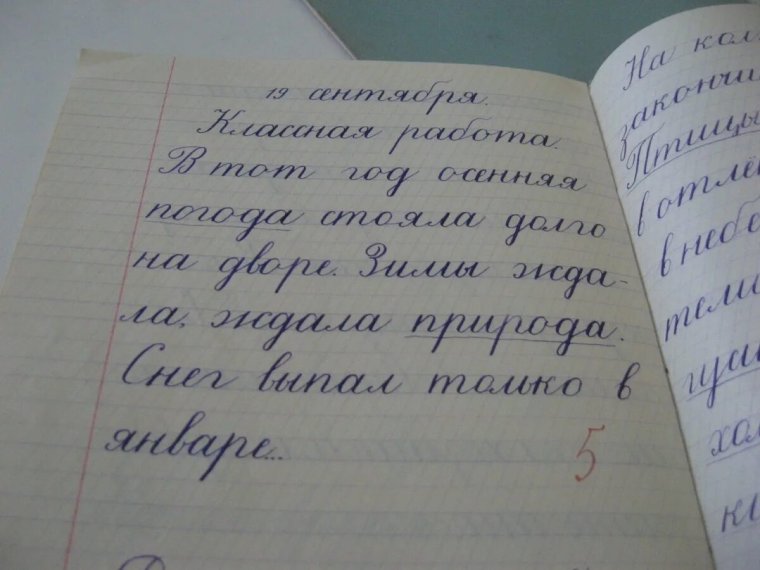 19 сентября.
Классная работа.
В тот год осенняя
погода стояла долго
на дворе. Зимы жда-
ла, ждала природа.
Снег выпал только в
январе...
5
На кол
закончи
Птицы
в отлё
в небе
теми
гуси